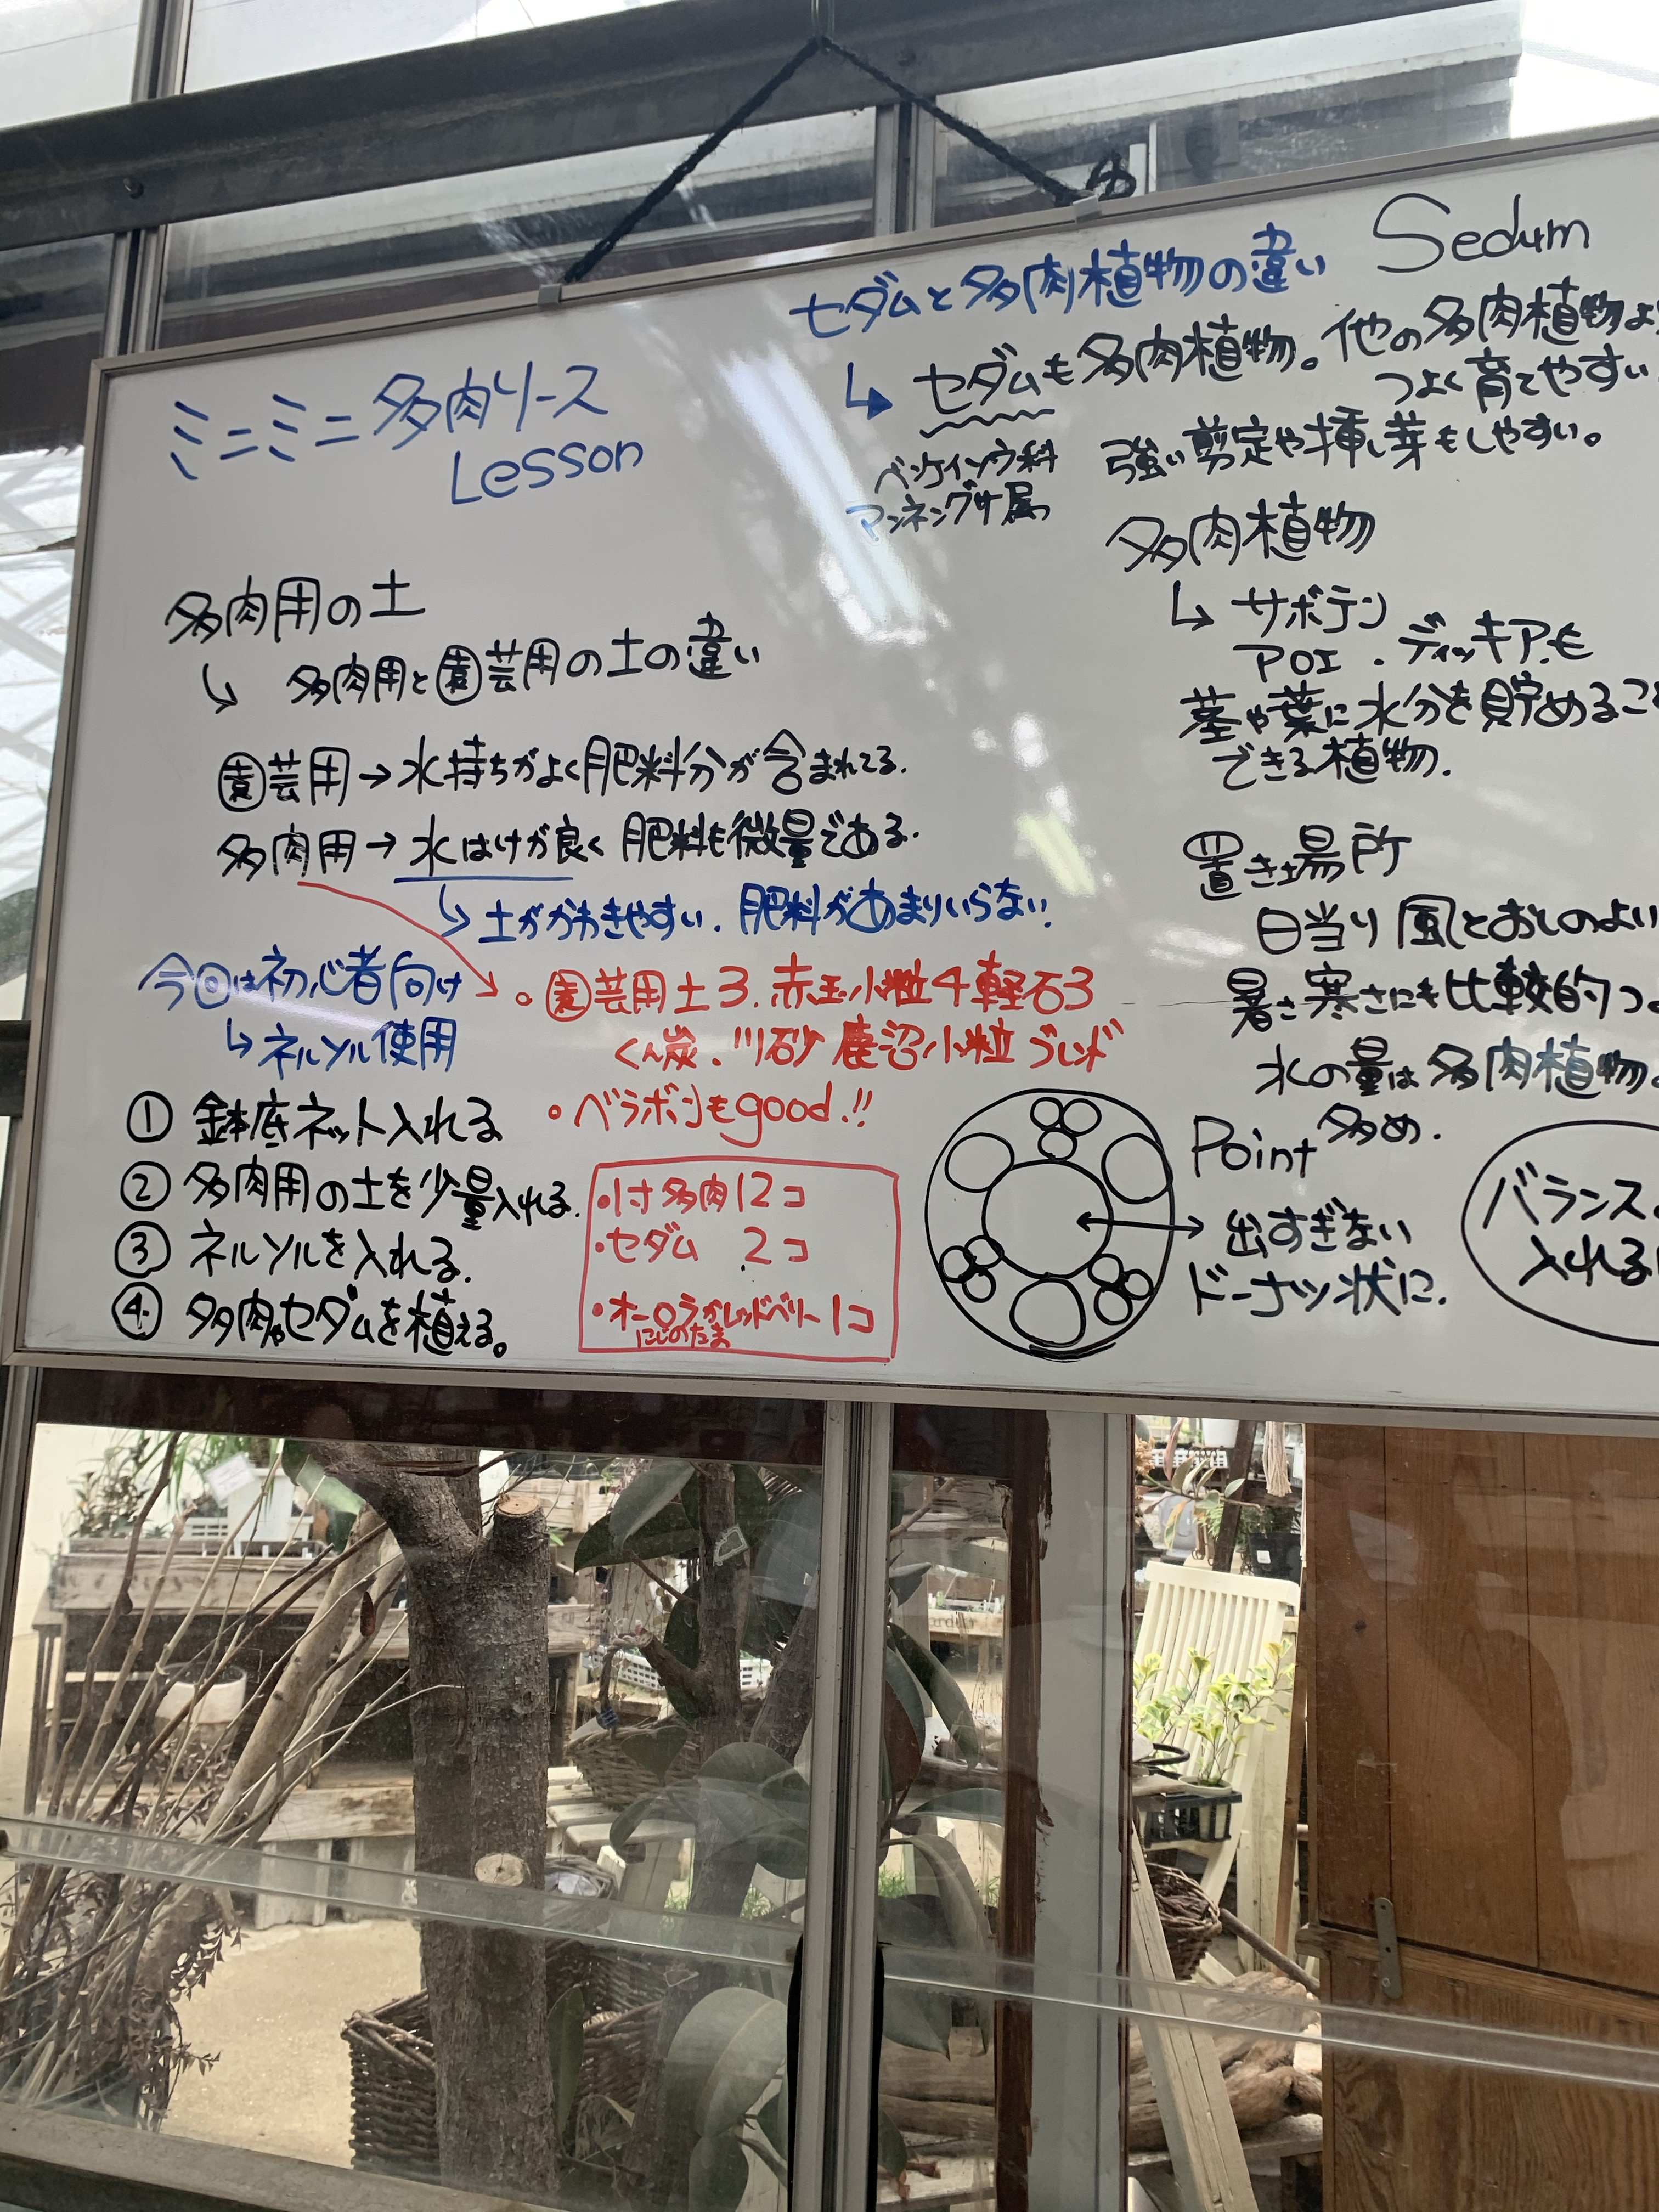 ミニミニ多肉リース
Lesson
多肉用の土
↳ 多肉用と園芸用の土の違い
園芸用→水持ちがよく肥料分が含まれてる.
多肉用→水はけが良く肥料も微量である.
↳土がかわきやすい. 肥料があまりいらない.
今回は初心者向け
↳ネルソル使用
・園芸用土3. 赤玉小粒4 軽石3
くん炭. 川砂 鹿沼小粒 ブレンド
・ベラボンもgood.!!
① 鉢底ネット入れる
② 多肉用の土を少量入れる.
③ ネルソルを入れる.
④ 多肉やセダムを植える。
・1寸多肉12コ
・セダム 2コ
・オーロラかレッドベリー1コ
にじのたま
セダムと多肉植物の違い Sedum
↳セダムも多肉植物。他の多肉植物よ
つよく育てやすい
ベンケイソウ科
マンネングサ属
強い剪定や挿し芽もしやすい。
多肉植物
↳サボテン
アロエ.ディッキアも
茎や葉に水分を貯めるこ
できる植物.
置き場所
日当り風とおしのよい
暑さ寒さにも比較的つ
水の量は多肉植物
多め.
Point
出すぎない
ドーナツ状に.
バランス
入れる